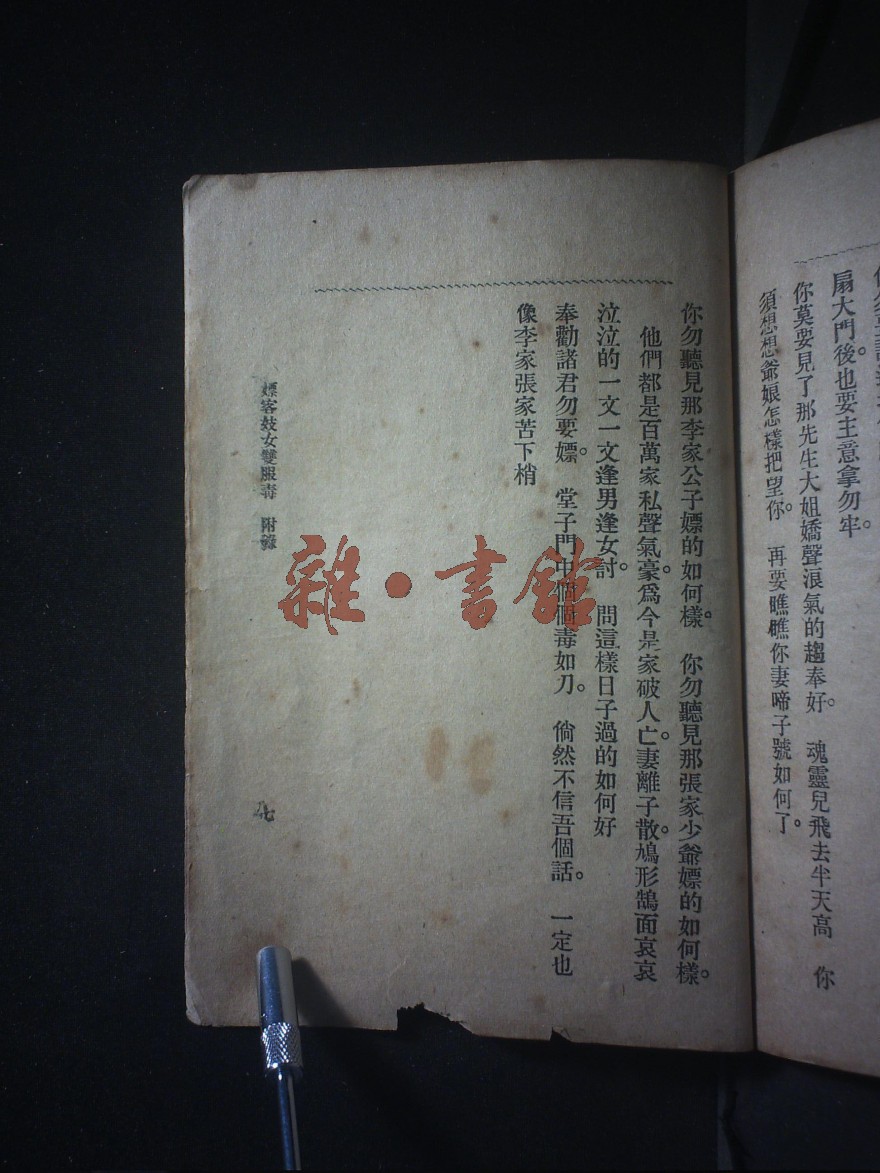 扇大門後也要主意拿勿牢。
你莫要見了那先生大姐嬌聲浪氣的趨奉好。　魂靈兒飛去半天高　你
須想想爺娘怎樣把望你。　再要瞧瞧你妻啼子號如何了。
你勿聽見那李家公子嫖的如何樣。　你勿聽見那張家少爺嫖的如何樣。
他們都是百萬家私聲氣豪。爲今是家破人亡。妻離子散。鳩形鵠面哀哀
泣泣的一文一文逢男逢女討。　問這樣日子過的如何好
奉勸諸君勿要嫖。　堂子門中個個毒如刀。　倘然不信吾個話。　一定也
像李家張家苦下梢
嫖客妓女雙服毒　附錄
七
雜·書館